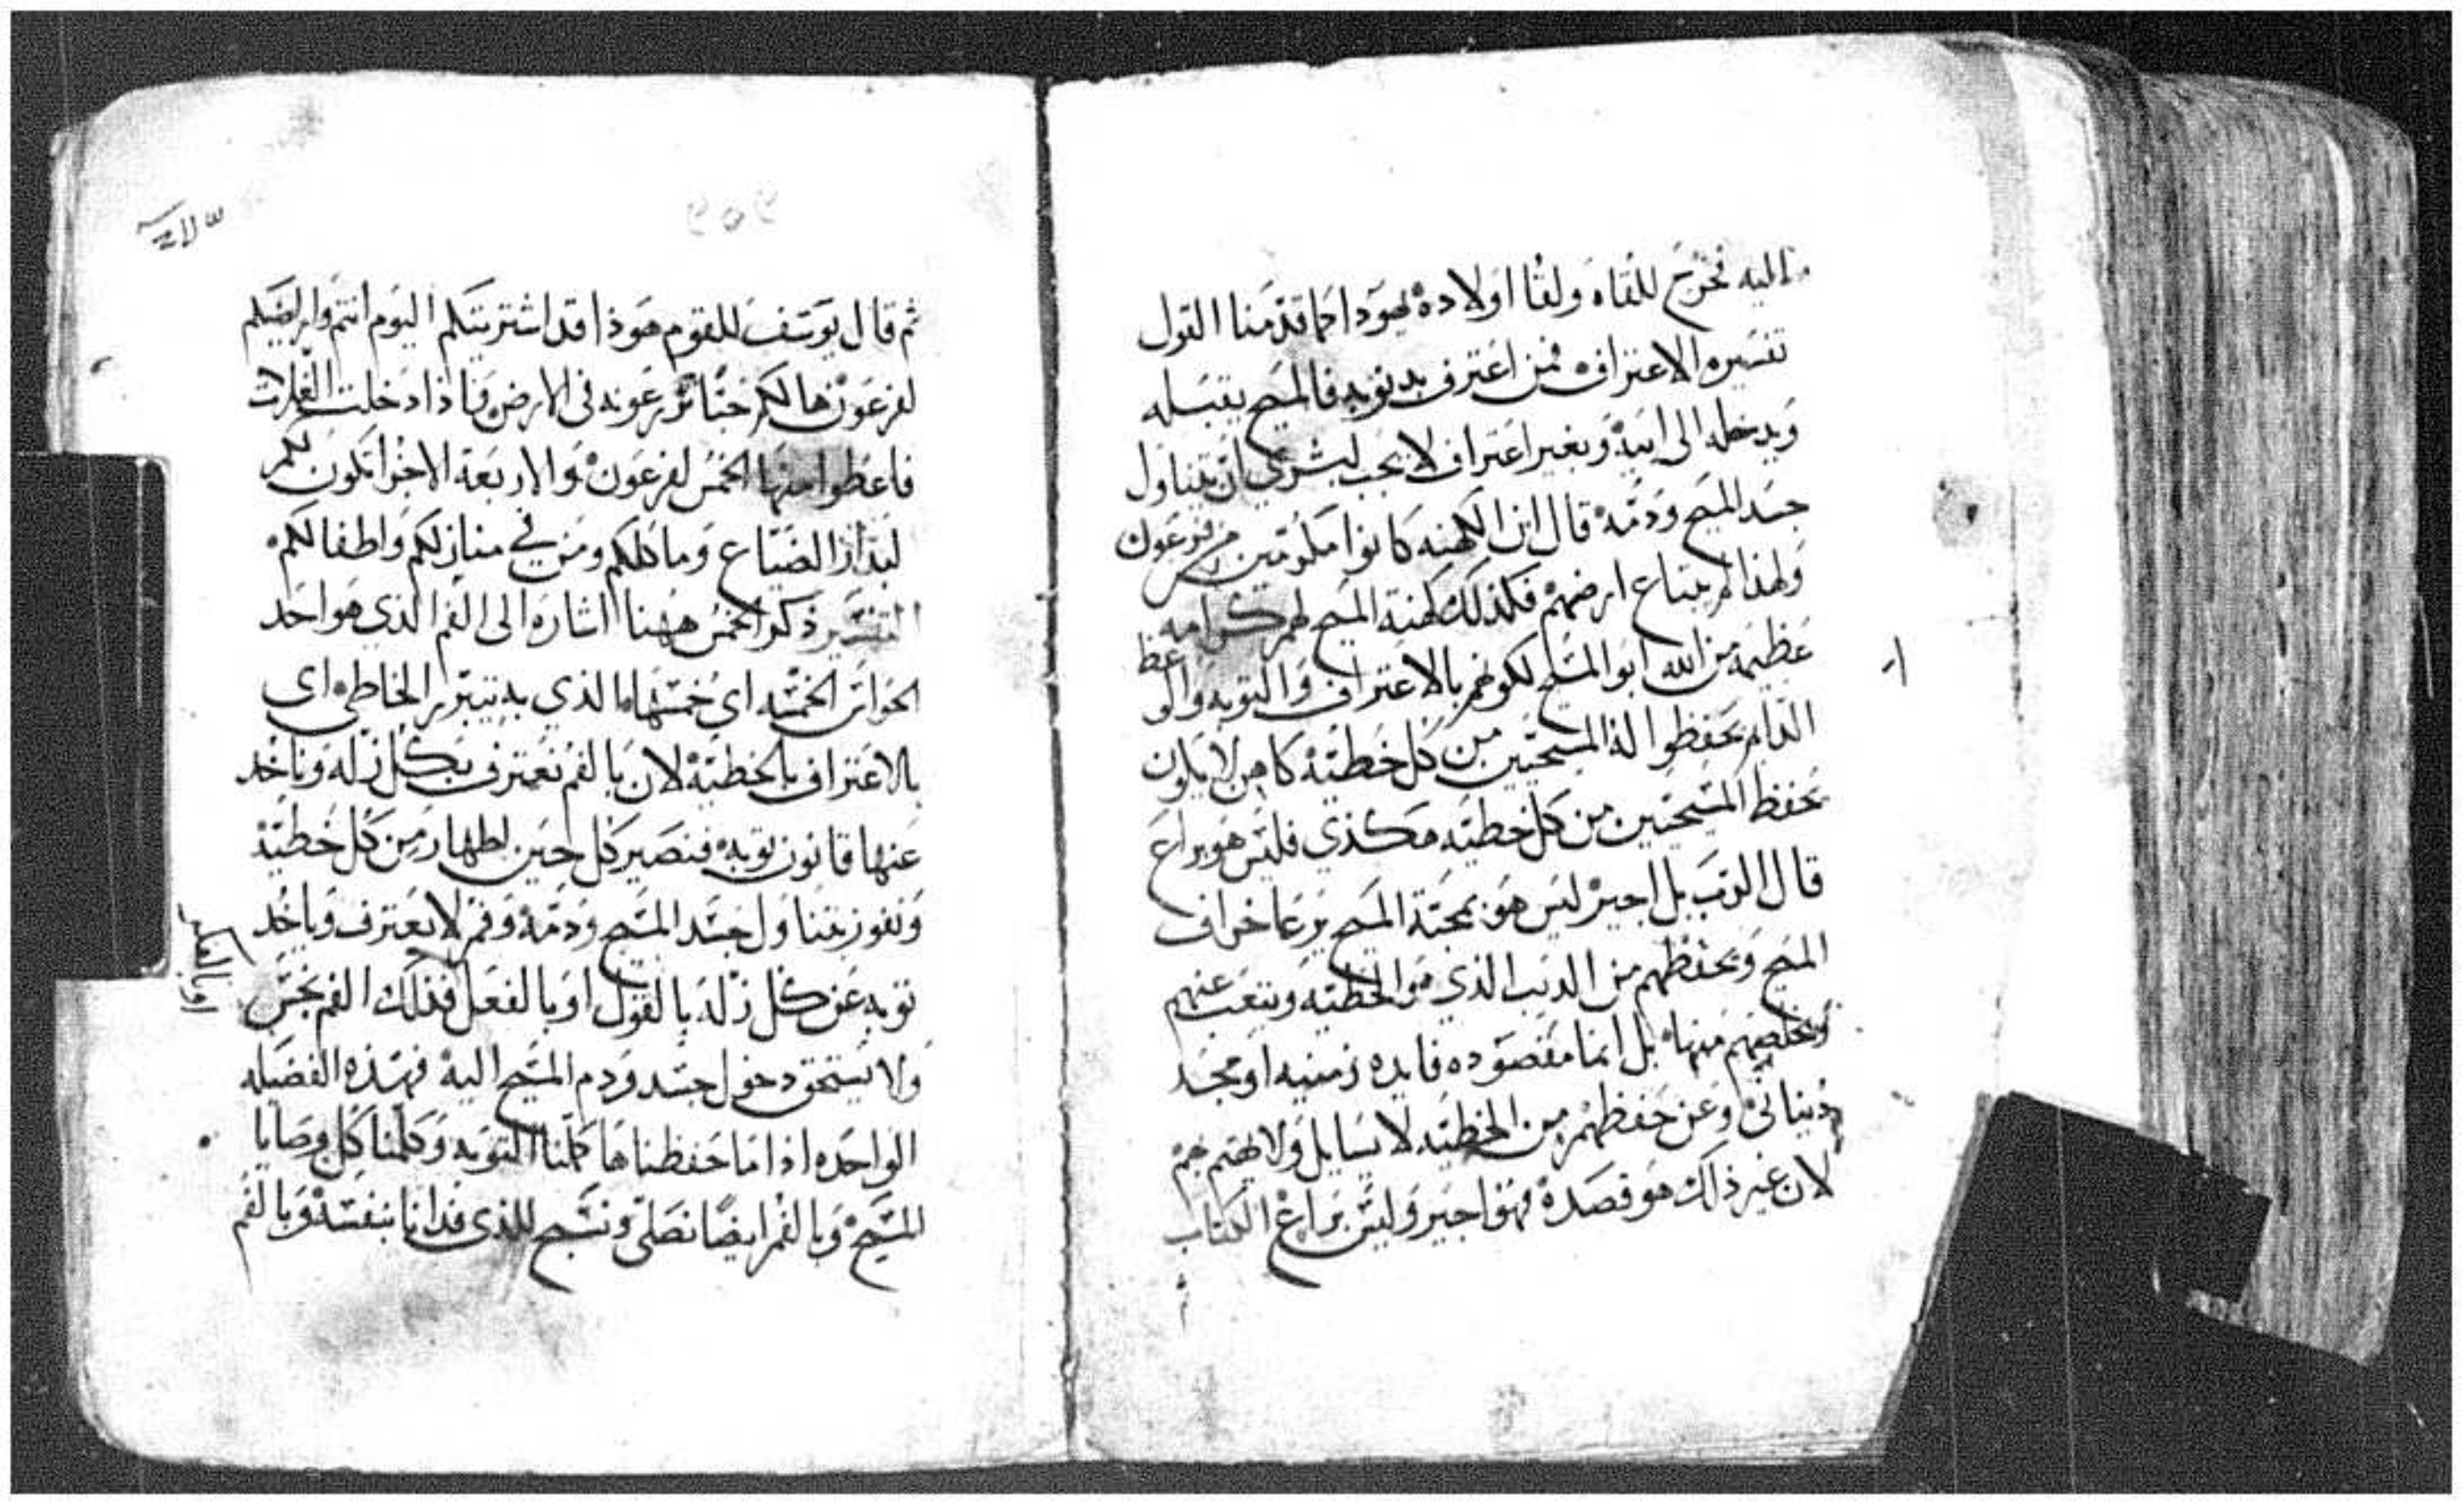 اليه فخرج للقاه ولقا اولاده يهودا كما قدمنا القول
تفسيره الاعتراف فمن اعترف بدنوبه فالمسيح يقبله
ويدخله الى ابيه وبغير اعتراف لا يجب لبشري ان يتناول
جسد المسيح ودمه قال ان الكهنه كانوا مكرمين من فرعون
ولهذا لم يبتاع ارضهم فكذلك كهنة المسيح لهم كرامه
عظيمه من الله ابو المسيح لكونهم بالاعتراف والتوبه
يحفظوا له المسيحيين من كل خطيئه كاهن لا يكون
يحفظ المسيحيين من كل خطيه هكذى فليس هو براع
قال الرب بل اجير ليس هو بمحبة المسيح يرعا خراف
المسيح ويحفظهم من الديب الذي هو الخطيه ويتعب عنهم
ويخلصهم منها بل انما مقصوده فايده زمنيه او مجد
دنياني وعن حفظهم من الخطيه لا يسايل ولا يهتم بهم
لان غير ذلك هو قصده فهو اجير وليس براع الكتاب
ثم قال يوسف للقوم هوذا قد اشتريتكم اليوم انتم وارضيكم
لفرعون ها لكم حبا تزرعونه في الارض فاذا دخلت الغلات
فاعطوا منها الخمس لفرعون والاربعة الاجزا تكون لكم
لبذار الضياع وماكلكم ومن في منازلكم واطفالكم
التفسير ذكر الخمس ههنا اشاره الى الفم الذي هو احد
الحواس الخمسه اي خمسها الذي به يتبرر الخاطي اي
بالاعتراف بالخطيه لان بالفم نعترف بكل زله وناخد
عنها قانون توبه فنصير كل حين اطهار من كل خطيه
ونفوز بتناول جسد المسيح ودمه وفم لا يعترف وياخد
توبه عن كل زله بالقول او بالفعل فذلك الفم نجس
ولا يستحق دخول جسد ودم المسيح اليه فهذه الفضيله
الواحده اذا ما حفظناها كملنا التوبه وكملنا كل وصايا
المسيح وبالفم ايضا نصلي ونسبح للذي فدانا بنفسه وبالفم